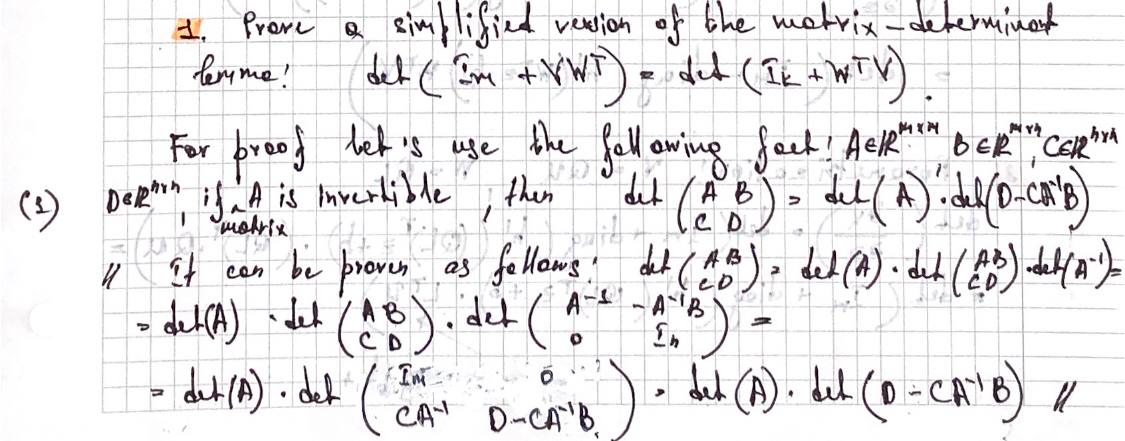 1. Prove a simplified version of the matrix-determinant
lemma: det (Im + VWᵀ) = det (Ik + WᵀV).
For proof let's use the following fact: A∈ℝᵐˣᵐ B∈ℝᵐˣⁿ, C∈ℝⁿˣⁿ
(1) D∈ℝⁿˣⁿ, if A is invertible, then det (A B
C D) = det (A) · det(D-CA⁻¹B)
matrix
// It can be proven as follows: det (A B
C D) = det(A) · det (A B
C D) · det(A⁻¹) =
= det(A) · det (A B
C D) · det (A⁻¹ -A⁻¹B
0 In) =
= det(A) · det (Im 0
CA⁻¹ D-CA⁻¹B) = det(A) · det (D-CA⁻¹B) //